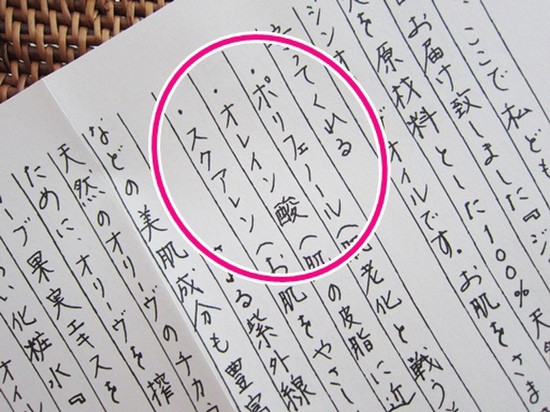 ここで私ども
お届け致しました『ジ
を原材料とした100%天
オイルです。お肌をさま
守ってくれる
・ポリフェノール（肌の老化と戦う
・オレイン酸（肌の皮脂に近
・スクアレン（お肌をやさし
る紫外線
などの美肌成分も豊富
天然のオリーヴのチカ
ために、オリーヴを搾
ーブ果実エキスを
い化粧水『
オイル